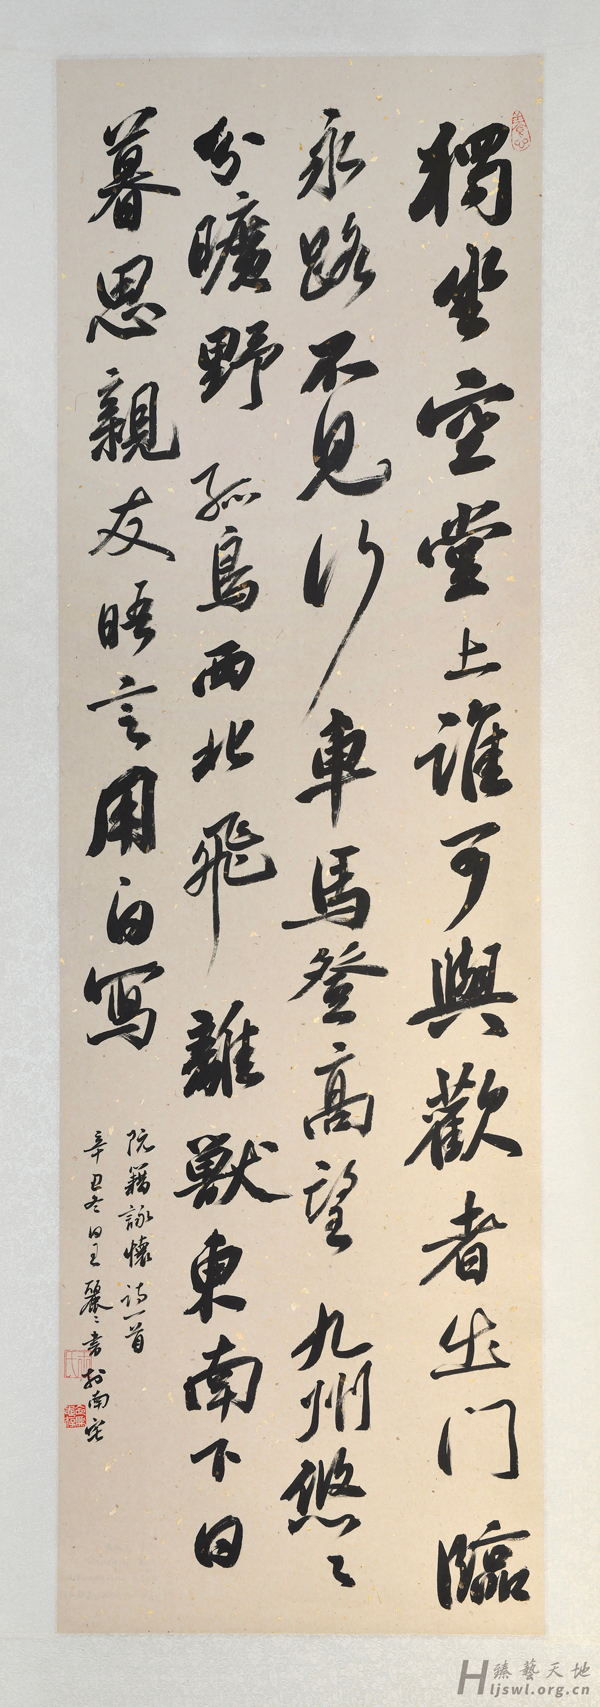 獨坐空堂上誰可與歡者出门臨
永路不見行車馬登高望九州悠〻
分曠野孤鳥西北飛離獸東南下日
暮思親友晤言用自写
阮籍詠懷诗一首
辛丑冬日王麗〻書於南窗
臻藝天地
Hljswl.org.cn